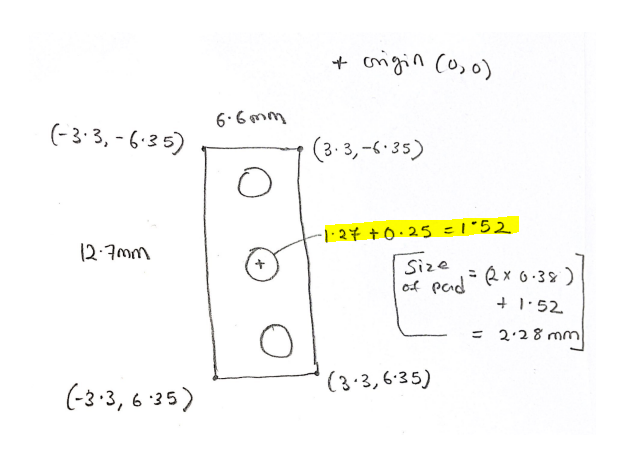 + origin (0,0)
6.6mm
(-3.3, -6.35)
(3.3, -6.35)
1.27 + 0.25 = 1.52
12.7mm
Size of pad = (2 x 0.38)
+ 1.52
= 2.28 mm
(3.3, 6.35)
(-3.3, 6.35)
+